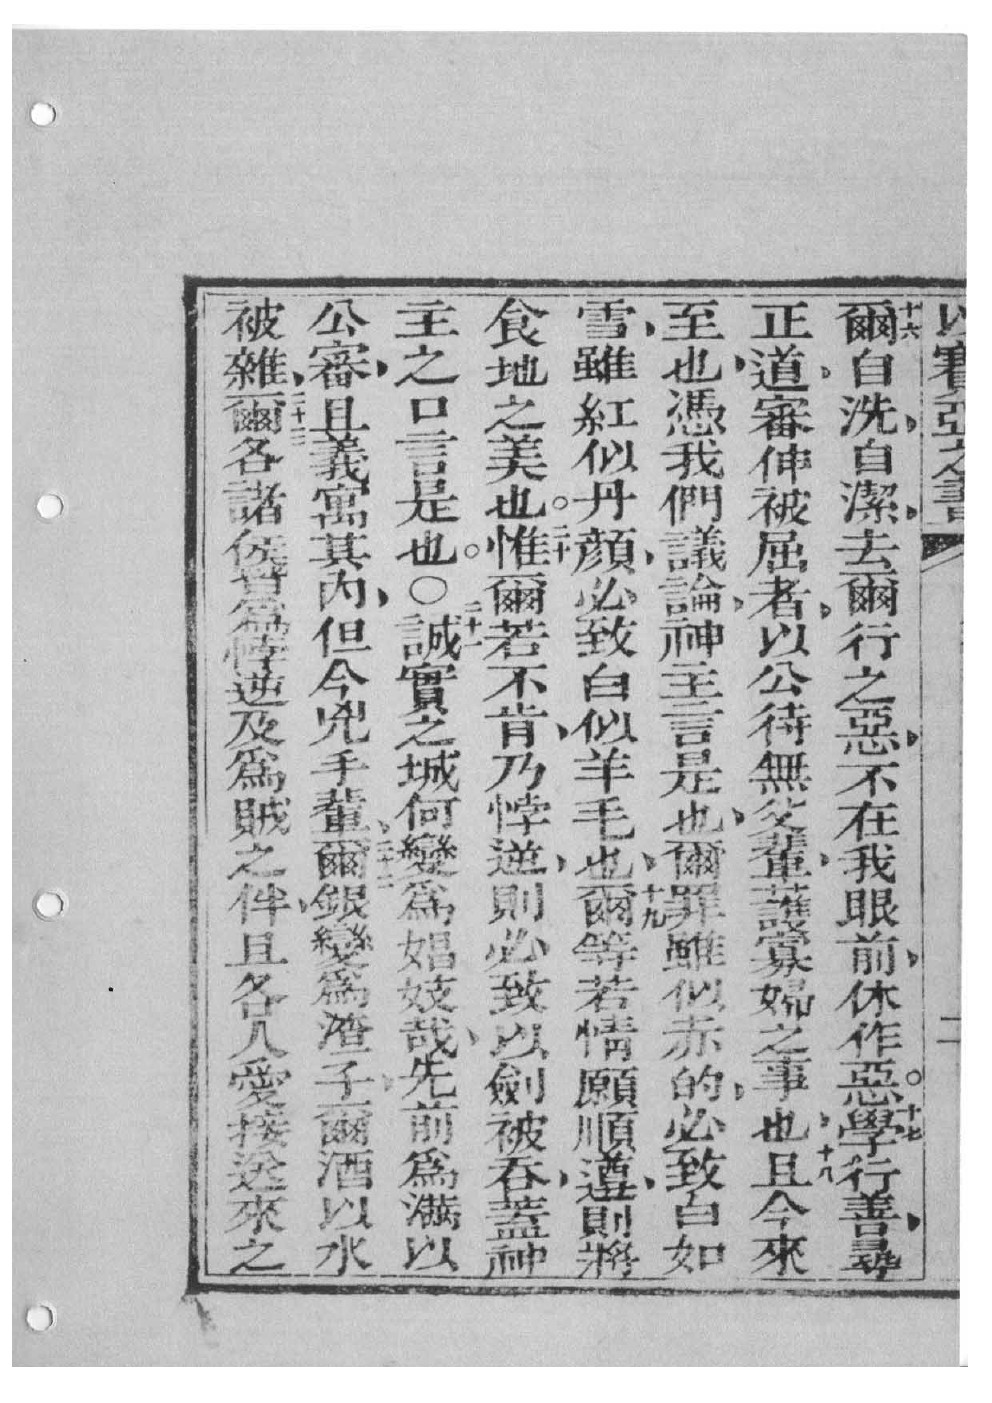 以賽亞之書 二
十六爾自洗、自潔、去爾行之惡、不在我眼前、休作惡。十七學行善、尋
正道、審伸被屈者、以公待無父輩、護寡婦之事也、十八且今來
至也、憑我們議論、神主言是也、爾罪雖似赤的、必致白如
雪、雖紅似丹顏、必致白似羊毛也、十九爾等若情願順遵、則將
食地之美也。二十惟爾若不肯、乃悖逆、則必致以劍被吞、蓋神
主之口言是也。○二十一誠實之城何變爲娼妓哉、先前爲滿以
公審、且義寓其內、但今兇手輩、二十二爾銀變爲渣子、爾酒以水
被雜、二十三爾各諸侯皆爲悖逆及爲賊之伴、且各人愛接送來之